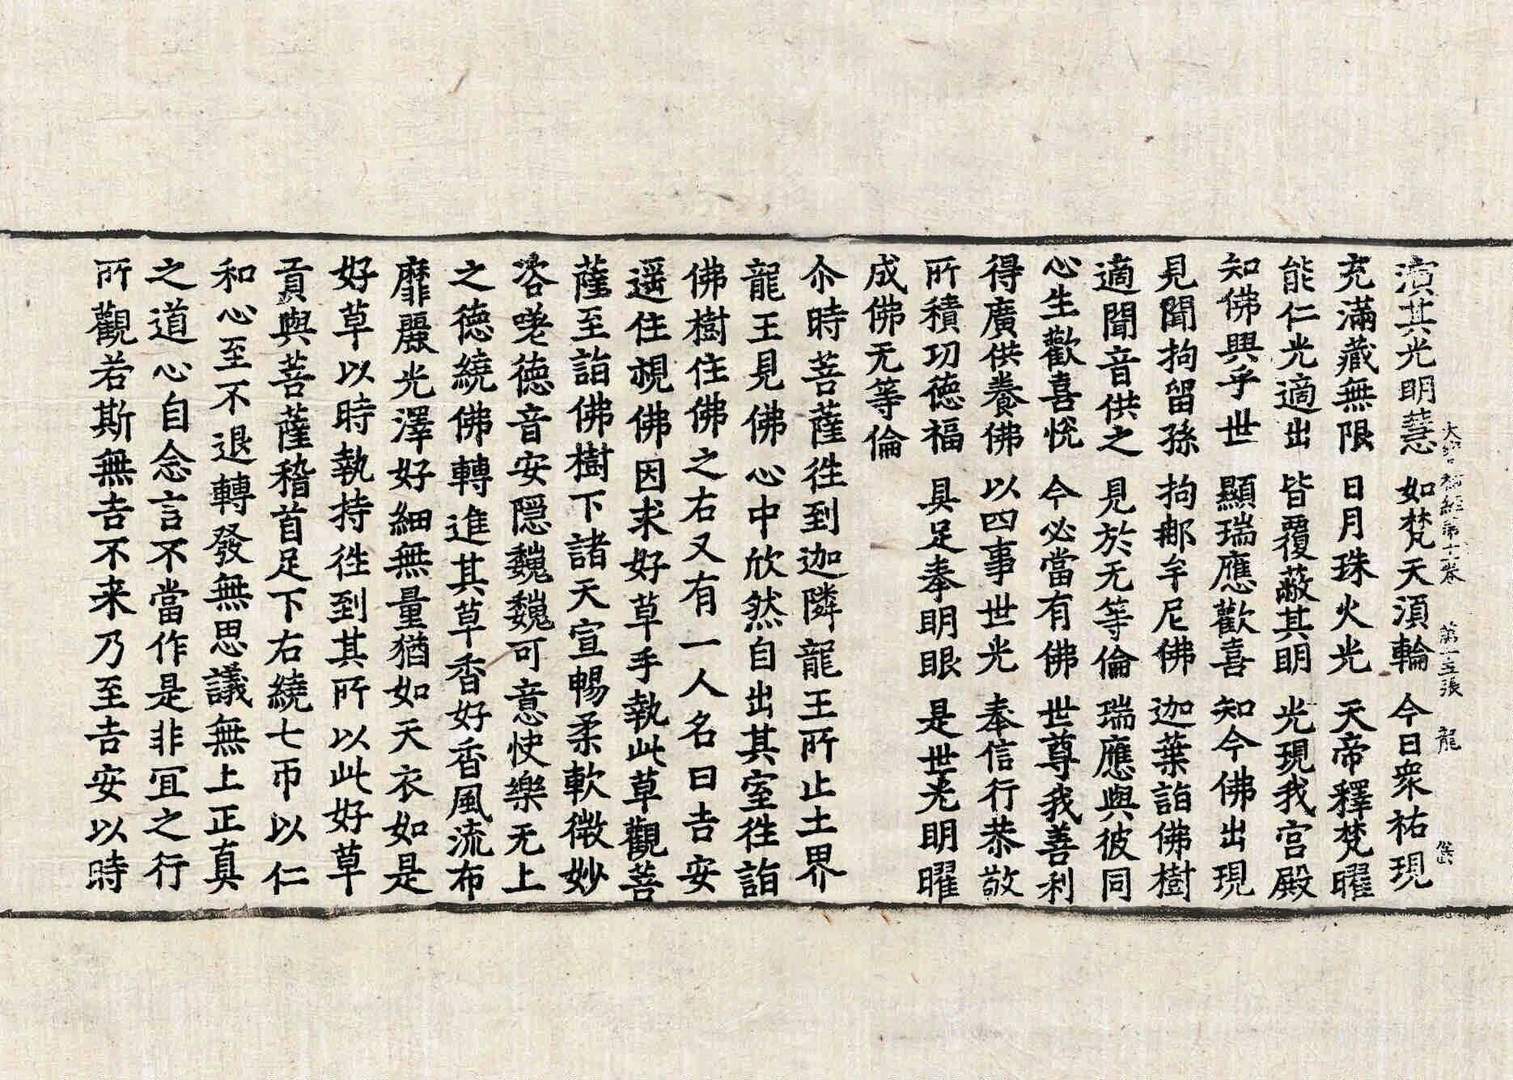 大寶積經第十卷 第十五張 龍
演其光明慧 如梵天須輪 今日衆祐現
充滿藏無限 日月珠火光 天帝釋梵曜
能仁光適出 皆覆蔽其明 光現我宮殿
知佛興乎世 顯瑞應歡喜 知今佛出現
見聞拘留孫 拘𨚗牟尼佛 迦葉詣佛樹
適聞音供之 見於无等倫 瑞應與彼同
心生歡喜悅 今必當有佛 世尊我善利
得廣供養佛 以四事世光 奉信行恭敬
所積功德福 具足奉明眼 是世光明曜
成佛无等倫
尒時菩薩徃到迦隣龍王所止土界
龍王見佛心中欣然自出其室徃詣
佛樹住佛之右又有一人名曰吉安
遥住視佛因求好草手執此草觀菩
薩至詣佛樹下諸天宣暢柔軟微妙
咨嗟德音安隱魏魏可意快樂无上
之德繞佛轉進其草香好香風流布
靡麗光澤好細無量猶如天衣如是
好草以時執持徃到其所以此好草
貢與菩薩稽首足下右繞七帀以仁
和心至不退轉發無思議無上正真
之道心自念言不當作是非冝之行
所觀若斯無吉不来乃至吉安以時